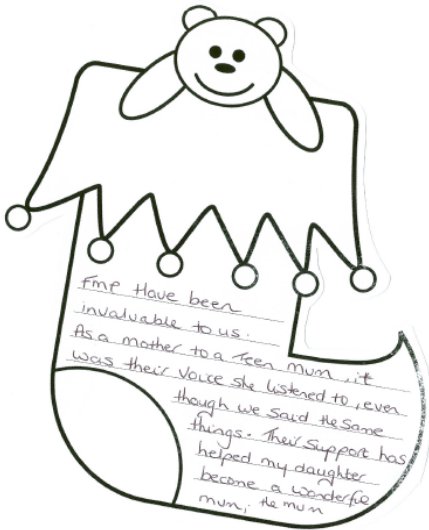 FMP Have been
invaluable to us.
As a mother to a Teen mum, it
was their voice she listened to, even
though we said the same
things. Their support has
helped my daughter
become a wonderful
mum; the mum